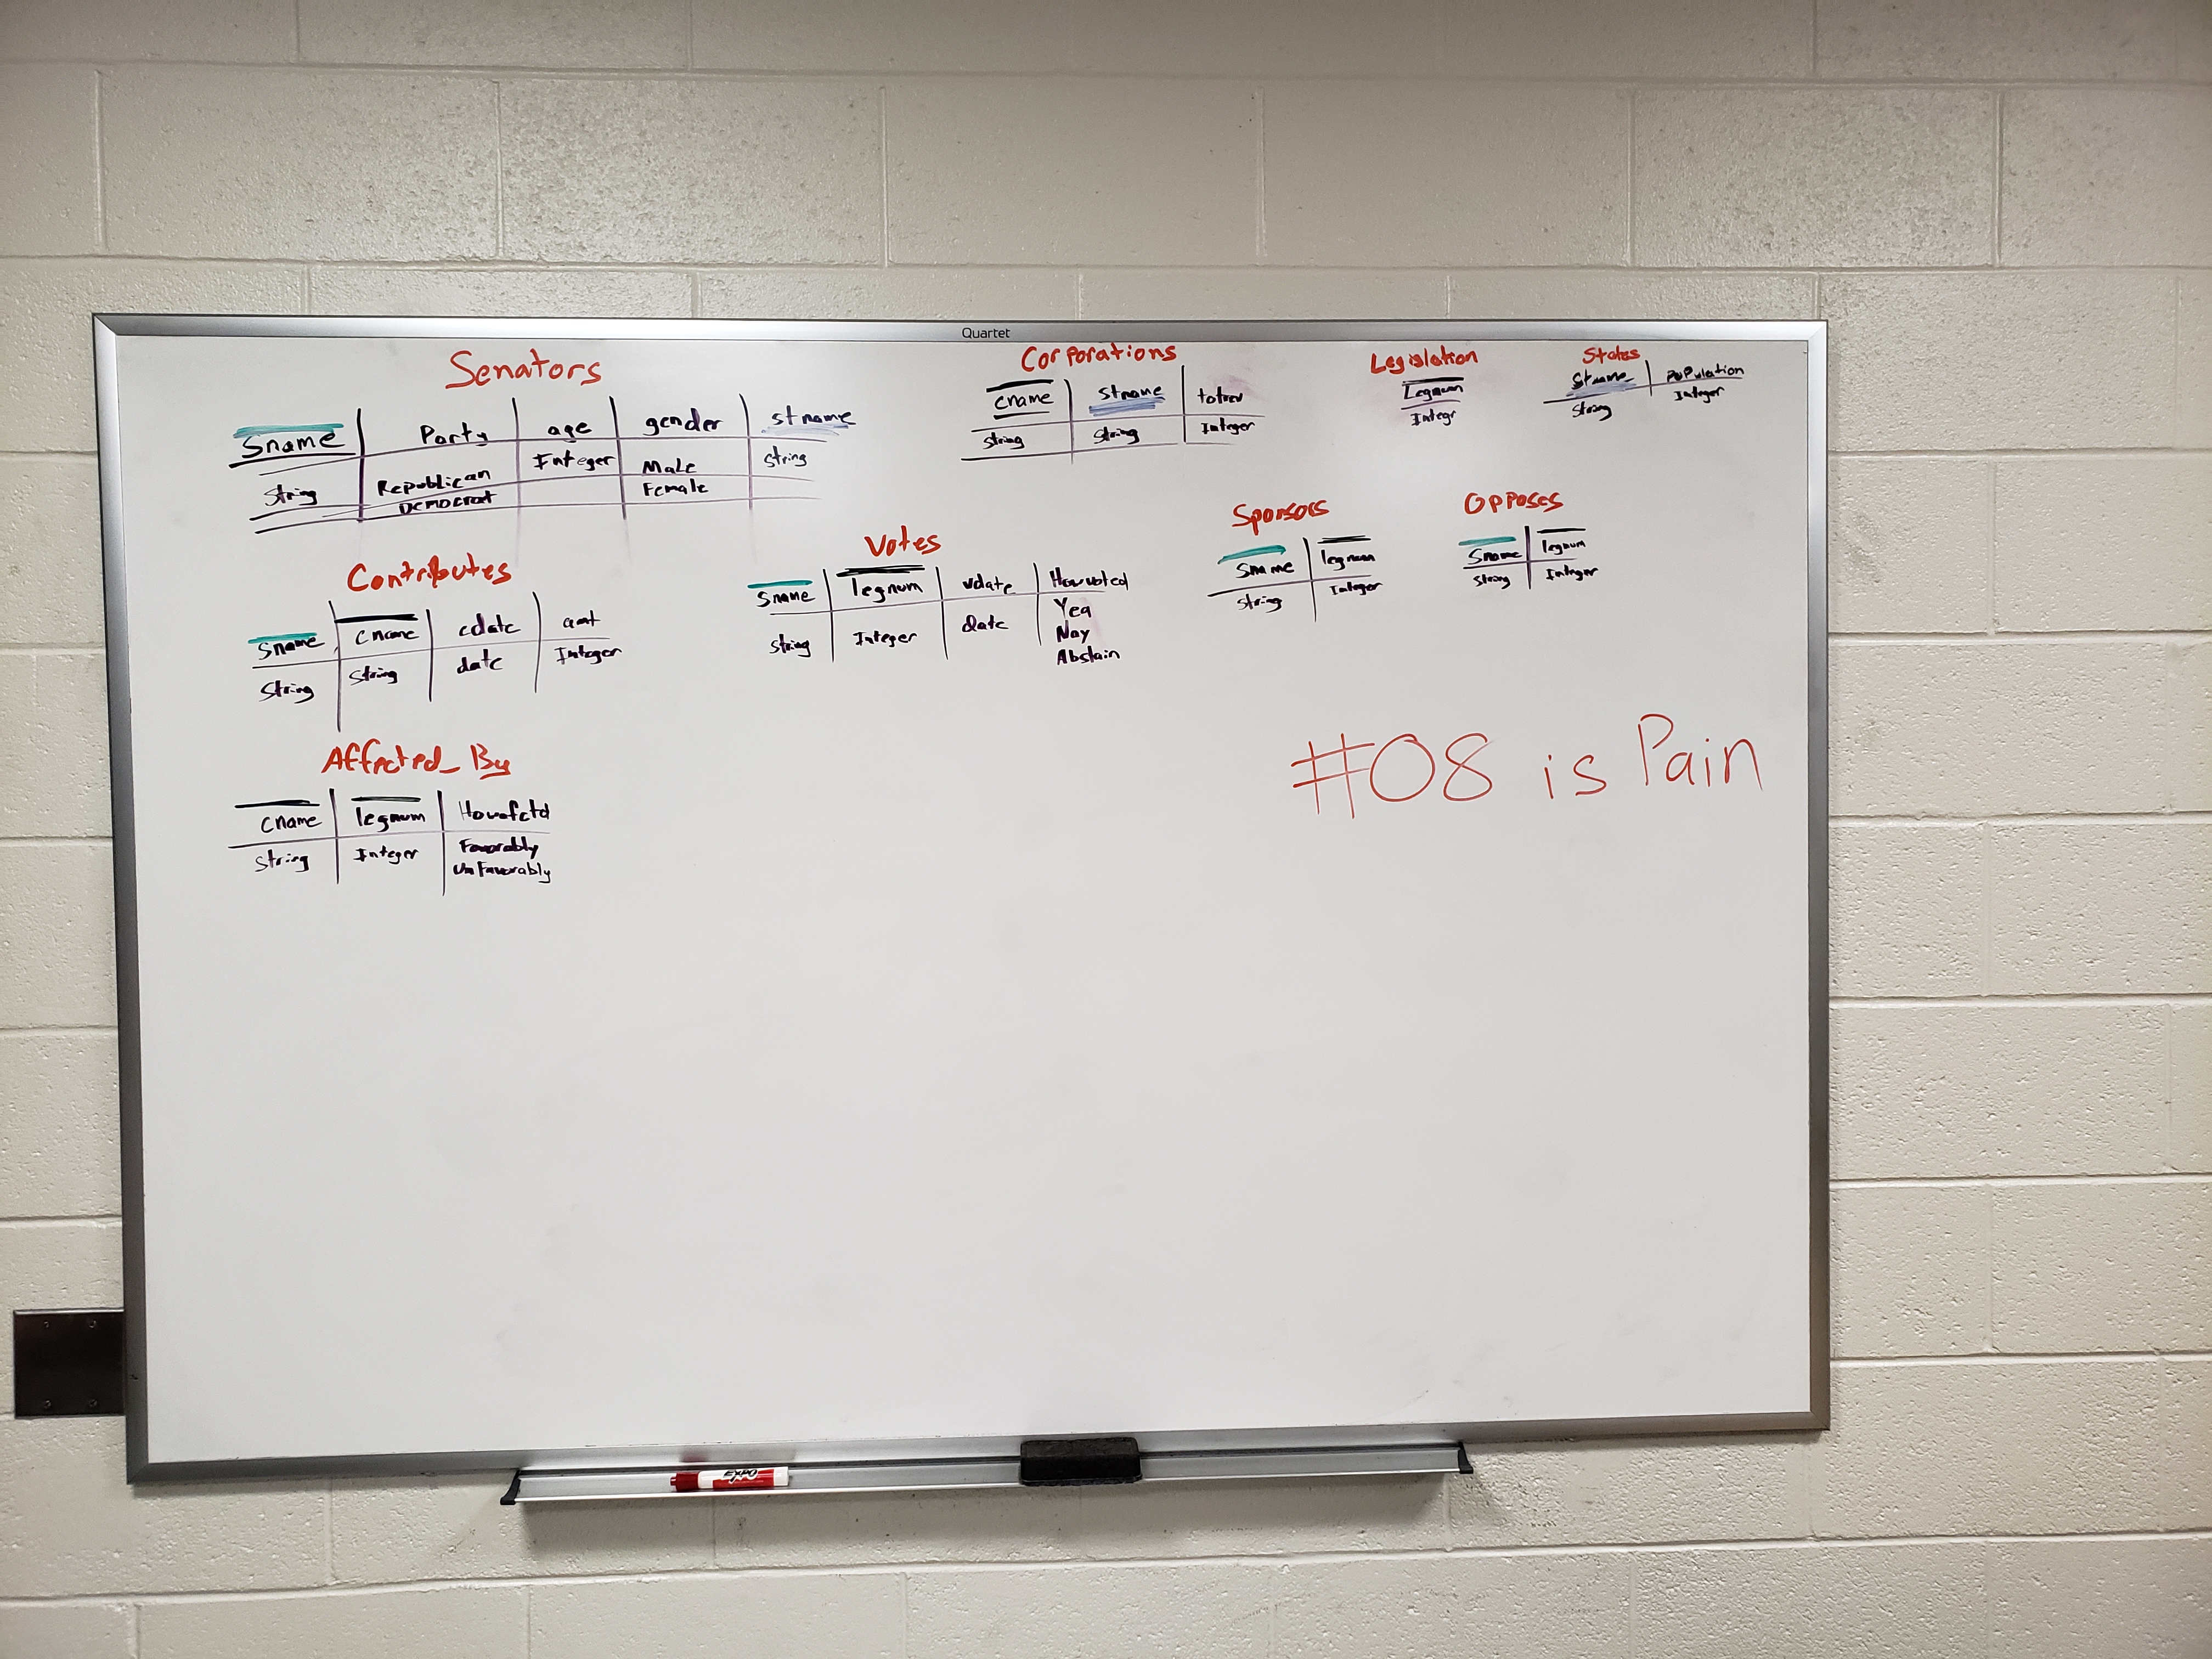 Quartet
Senators
Sname Party age gender stname
String Republican Integer Male String
Democrat Female
Corporations
cname stname totrev
String String Integer
Legislation
Legnum
Integr
States
Stname Population
String Integer
Contributes
Sname cname cdate amt
String String date Integer
Votes
Sname legnum vdate Howvoted
String Integer date Yea
Nay
Abstain
Sponsors
Sname legnum
String Integer
Opposes
Sname legnum
String Integer
#08 is Pain
Affected_By
cname legnum Howafctd
String Integer Favorably
UnFavorably
EXPO